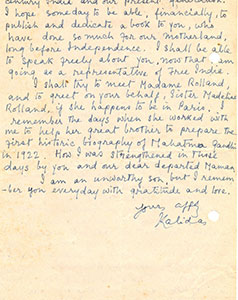 century India and our present
I hope someday to be able, financially, to
publish and dedicate a book to you, who
have done so much for our motherland,
long before Independence. I shall be able
to speak freely about you, now that I am
going as a representative of Free India.
I shall try to meet Madame Rolland,
and to greet on your behalf, Sister Madeleine
Rolland, if she happens to be in Paris. I
remember the days when she worked with
me to help her great brother to prepare the
first historic biography of Mahatma Gandhi
in 1922. How I was strengthened in those
days by you and our dear departed Maman
I am an unworthy son, but I remem
-ber you everyday with gratitude and love.
Yours affly
Kalidas